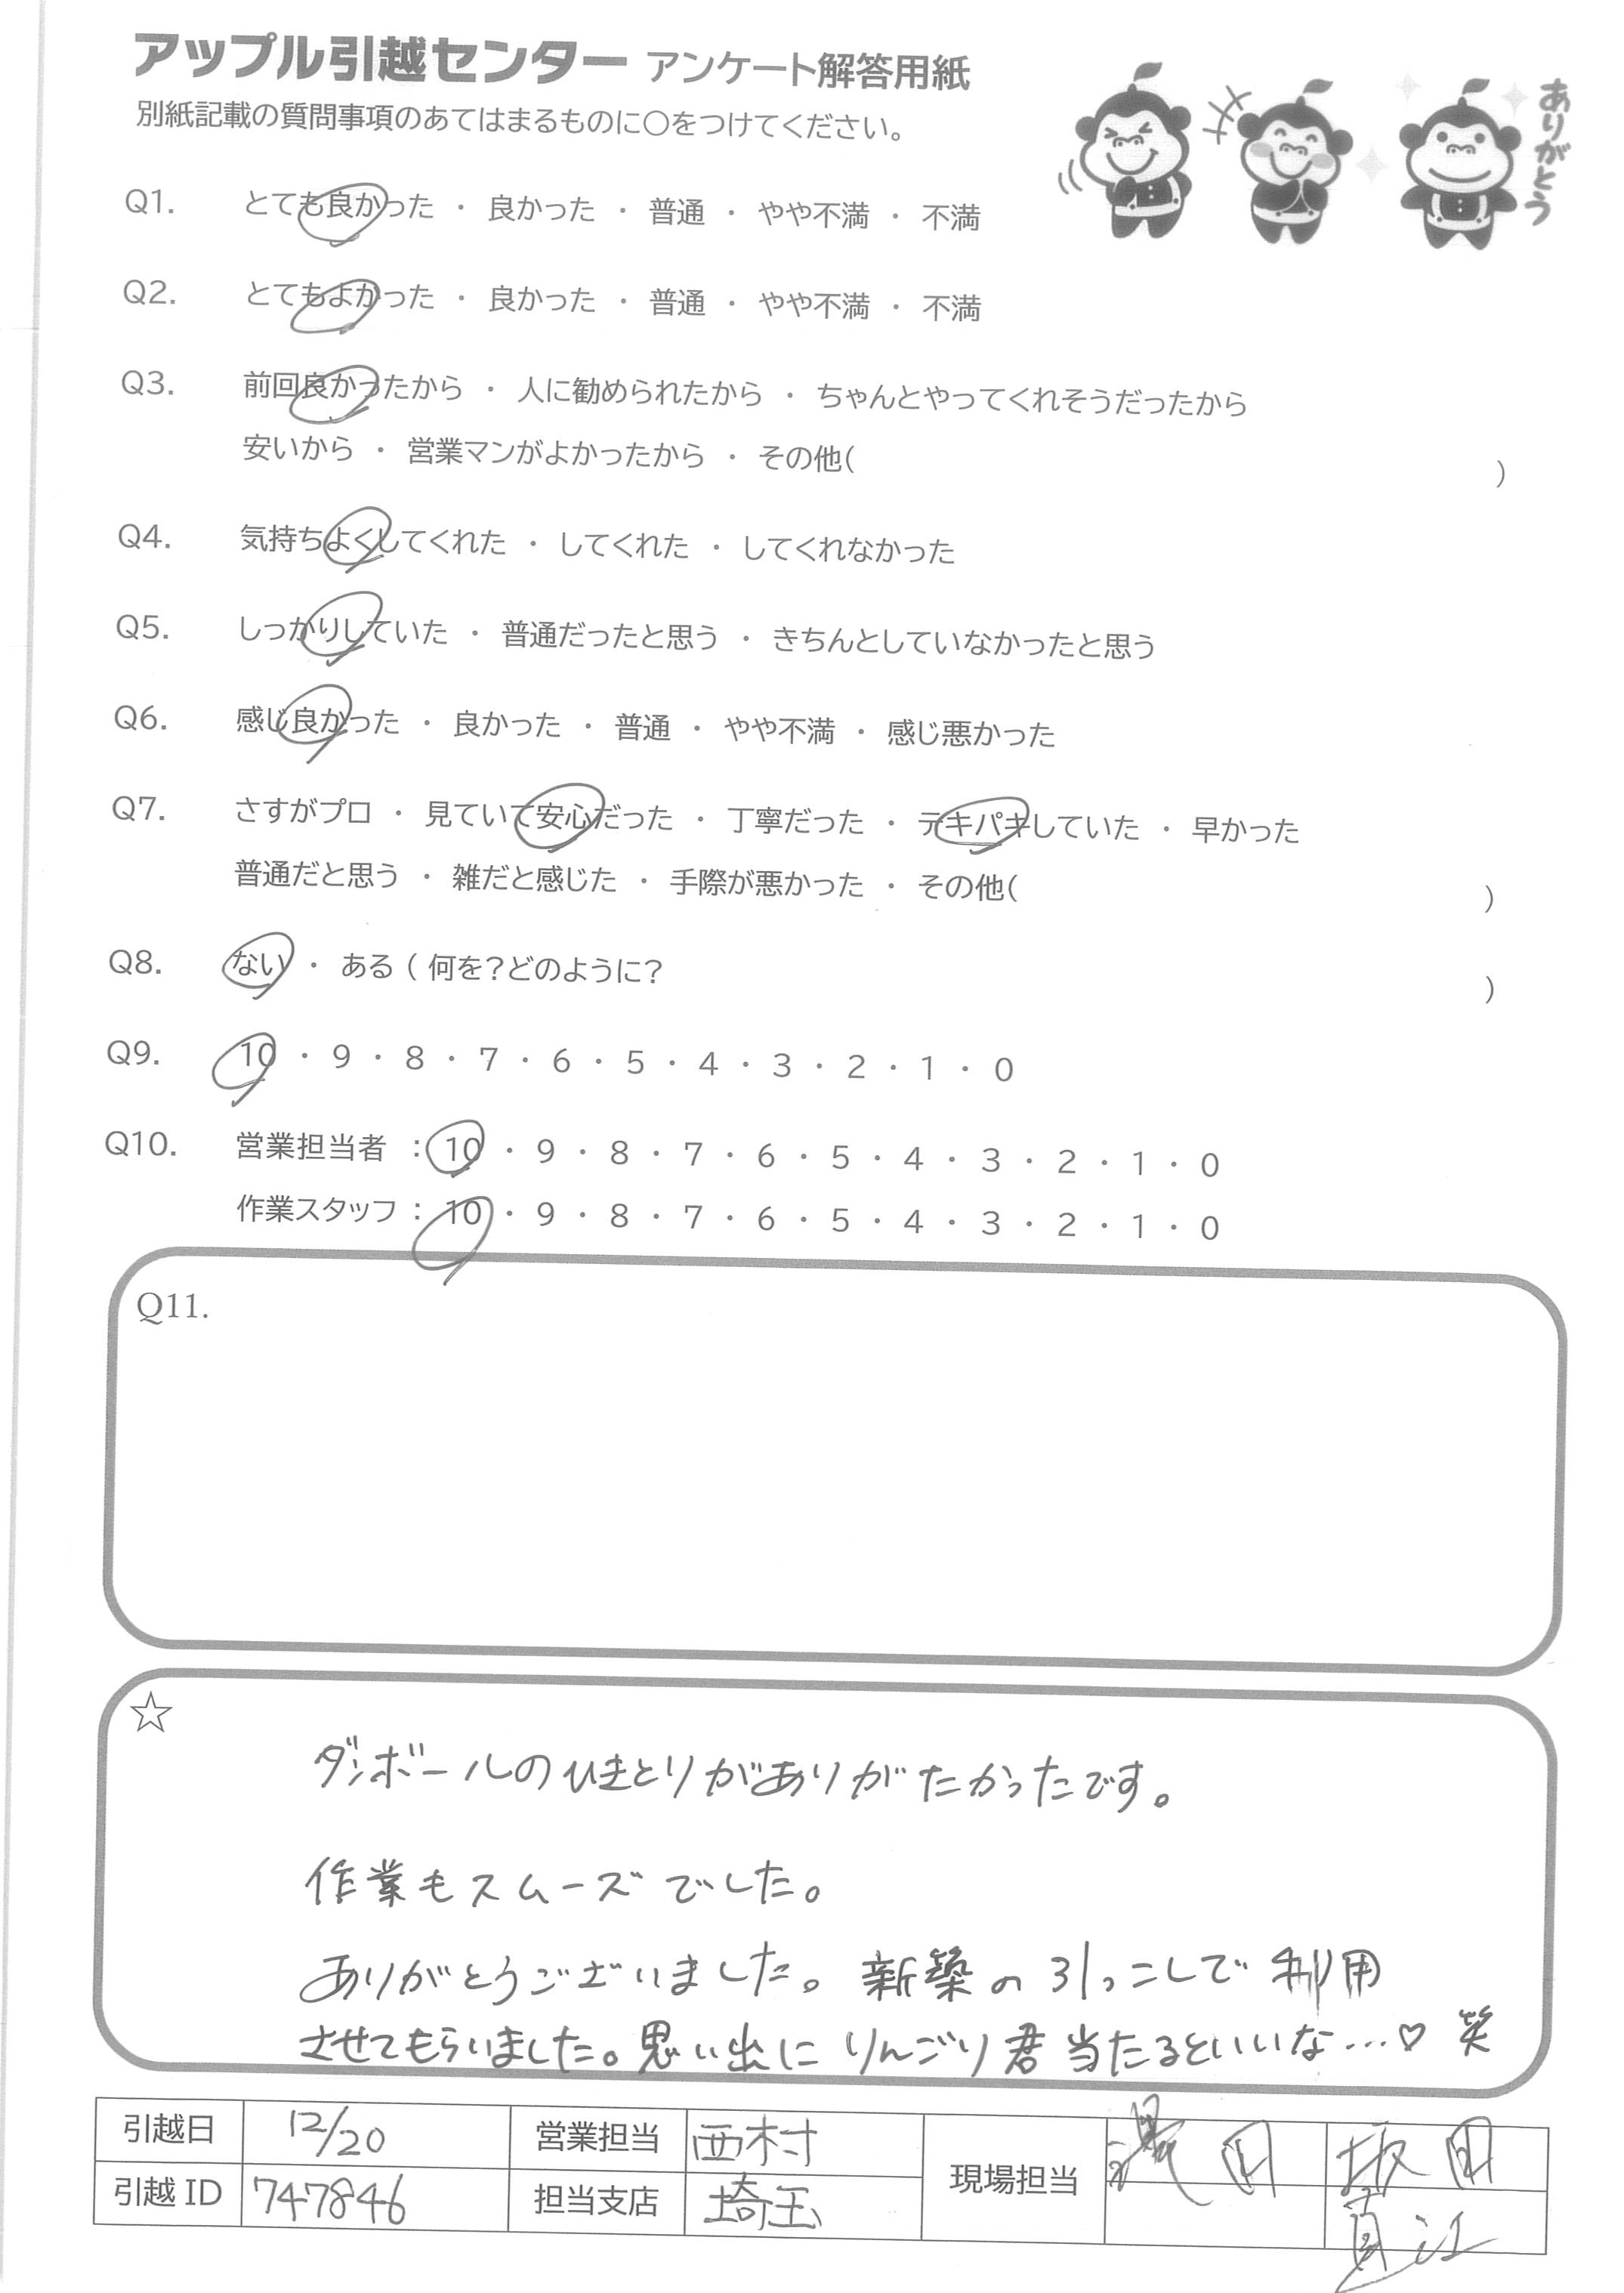 アップル引越センター アンケート解答用紙
別紙記載の質問事項のあてはまるものに○をつけてください。
ありがとう
Q1. とても良かった ・ 良かった ・ 普通 ・ やや不満 ・ 不満
Q2. とてもよかった ・ 良かった ・ 普通 ・ やや不満 ・ 不満
Q3. 前回良かったから ・ 人に勧められたから ・ ちゃんとやってくれそうだったから
安いから ・ 営業マンがよかったから ・ その他( )
Q4. 気持ちよくしてくれた ・ してくれた ・ してくれなかった
Q5. しっかりしていた ・ 普通だったと思う ・ きちんとしていなかったと思う
Q6. 感じ良かった ・ 良かった ・ 普通 ・ やや不満 ・ 感じ悪かった
Q7. さすがプロ ・ 見ていて安心だった ・ 丁寧だった ・ テキパキしていた ・ 早かった
普通だと思う ・ 雑だと感じた ・ 手際が悪かった ・ その他( )
Q8. ない ・ ある ( 何を?どのように? )
Q9. 10 ・ 9 ・ 8 ・ 7 ・ 6 ・ 5 ・ 4 ・ 3 ・ 2 ・ 1 ・ 0
Q10. 営業担当者 : 10 ・ 9 ・ 8 ・ 7 ・ 6 ・ 5 ・ 4 ・ 3 ・ 2 ・ 1 ・ 0
作業スタッフ : 10 ・ 9 ・ 8 ・ 7 ・ 6 ・ 5 ・ 4 ・ 3 ・ 2 ・ 1 ・ 0
Q11.
☆
ダンボールのひきとりがありがたかったです。
作業もスムーズでした。
ありがとうございました。新築の引っこしで利用
させてもらいました。思い出にりんごり君当たるといいな…♡ 笑
引越日 12/20 営業担当 西村 現場担当 田 坂田
引越ID 747846 担当支店 埼玉 直江